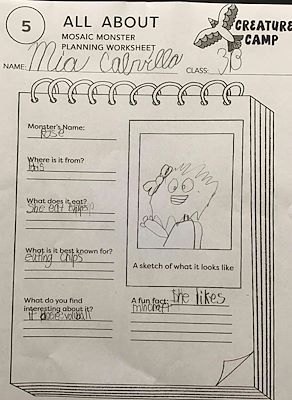 5
ALL ABOUT
MOSAIC MONSTER
PLANNING WORKSHEET
CREATURE
CAMP
NAME: Mia
CLASS: 313
Monster's Name:
rose
Where is it from?
What does it eat?
She eat
What is it best known for?
eating chips
A sketch of what it looks like
What do you find
interesting about it?
it
A fun fact: She likes
mincraft